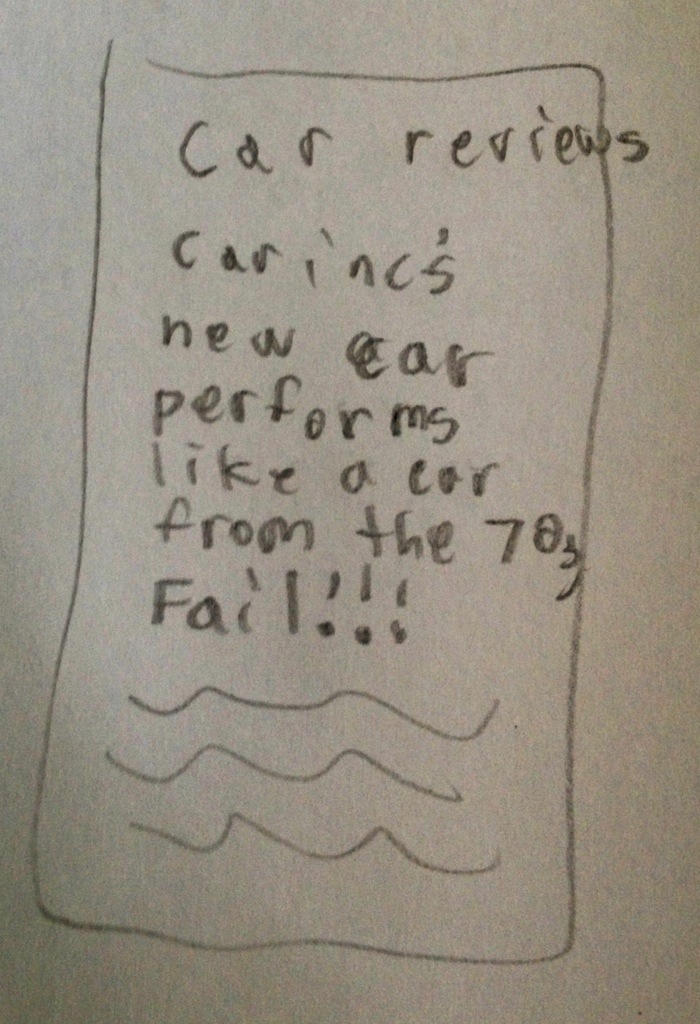 Car reviews
Car inc's
new car
performs
like a car
from the 70s,
Fail!!!